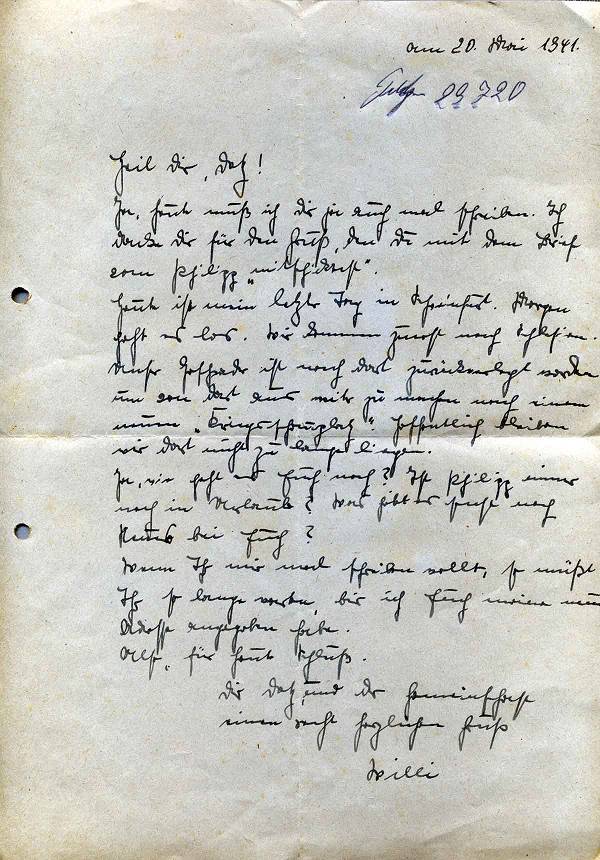 am 20. Mai 1941.
22720
Heil dir, Datz!
Ja, heute muß ich dir ja auch mal schreiben. Ich
danke dir für den Gruß, den du mit dem Brief
vom Philipp „mitschicktest“.
Heute ist mein letzter Tag in Schweinfurt. Morgen
geht es los. Wir kommen zuerst nach Schlesien.
Unser Geschwader ist nach dort zurückverlegt worden
um von dort aus weiter zu machen nach einem
neuen „Kriegsschauplatz“ hoffentlich bleiben
wir dort nicht zu lange liegen.
Ja, wie geht es Euch noch? Ist Philipp immer
noch in Urlaub? Was gibt es sonst noch
Neues bei Euch?
Wenn Ihr mir mal schreiben wollt, so müßt
Ihr so lange warten, bis ich Euch meine neue
Adresse angegeben habe.
Also, für heut Schluß.
Dir Datz, und der Gemeinschaft
einen recht herzlichen Gruß
Willi